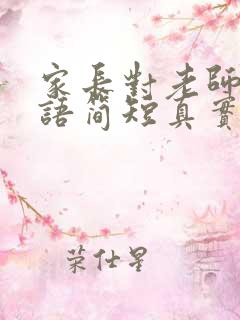 家長對老師
語簡短真實
荣仕星